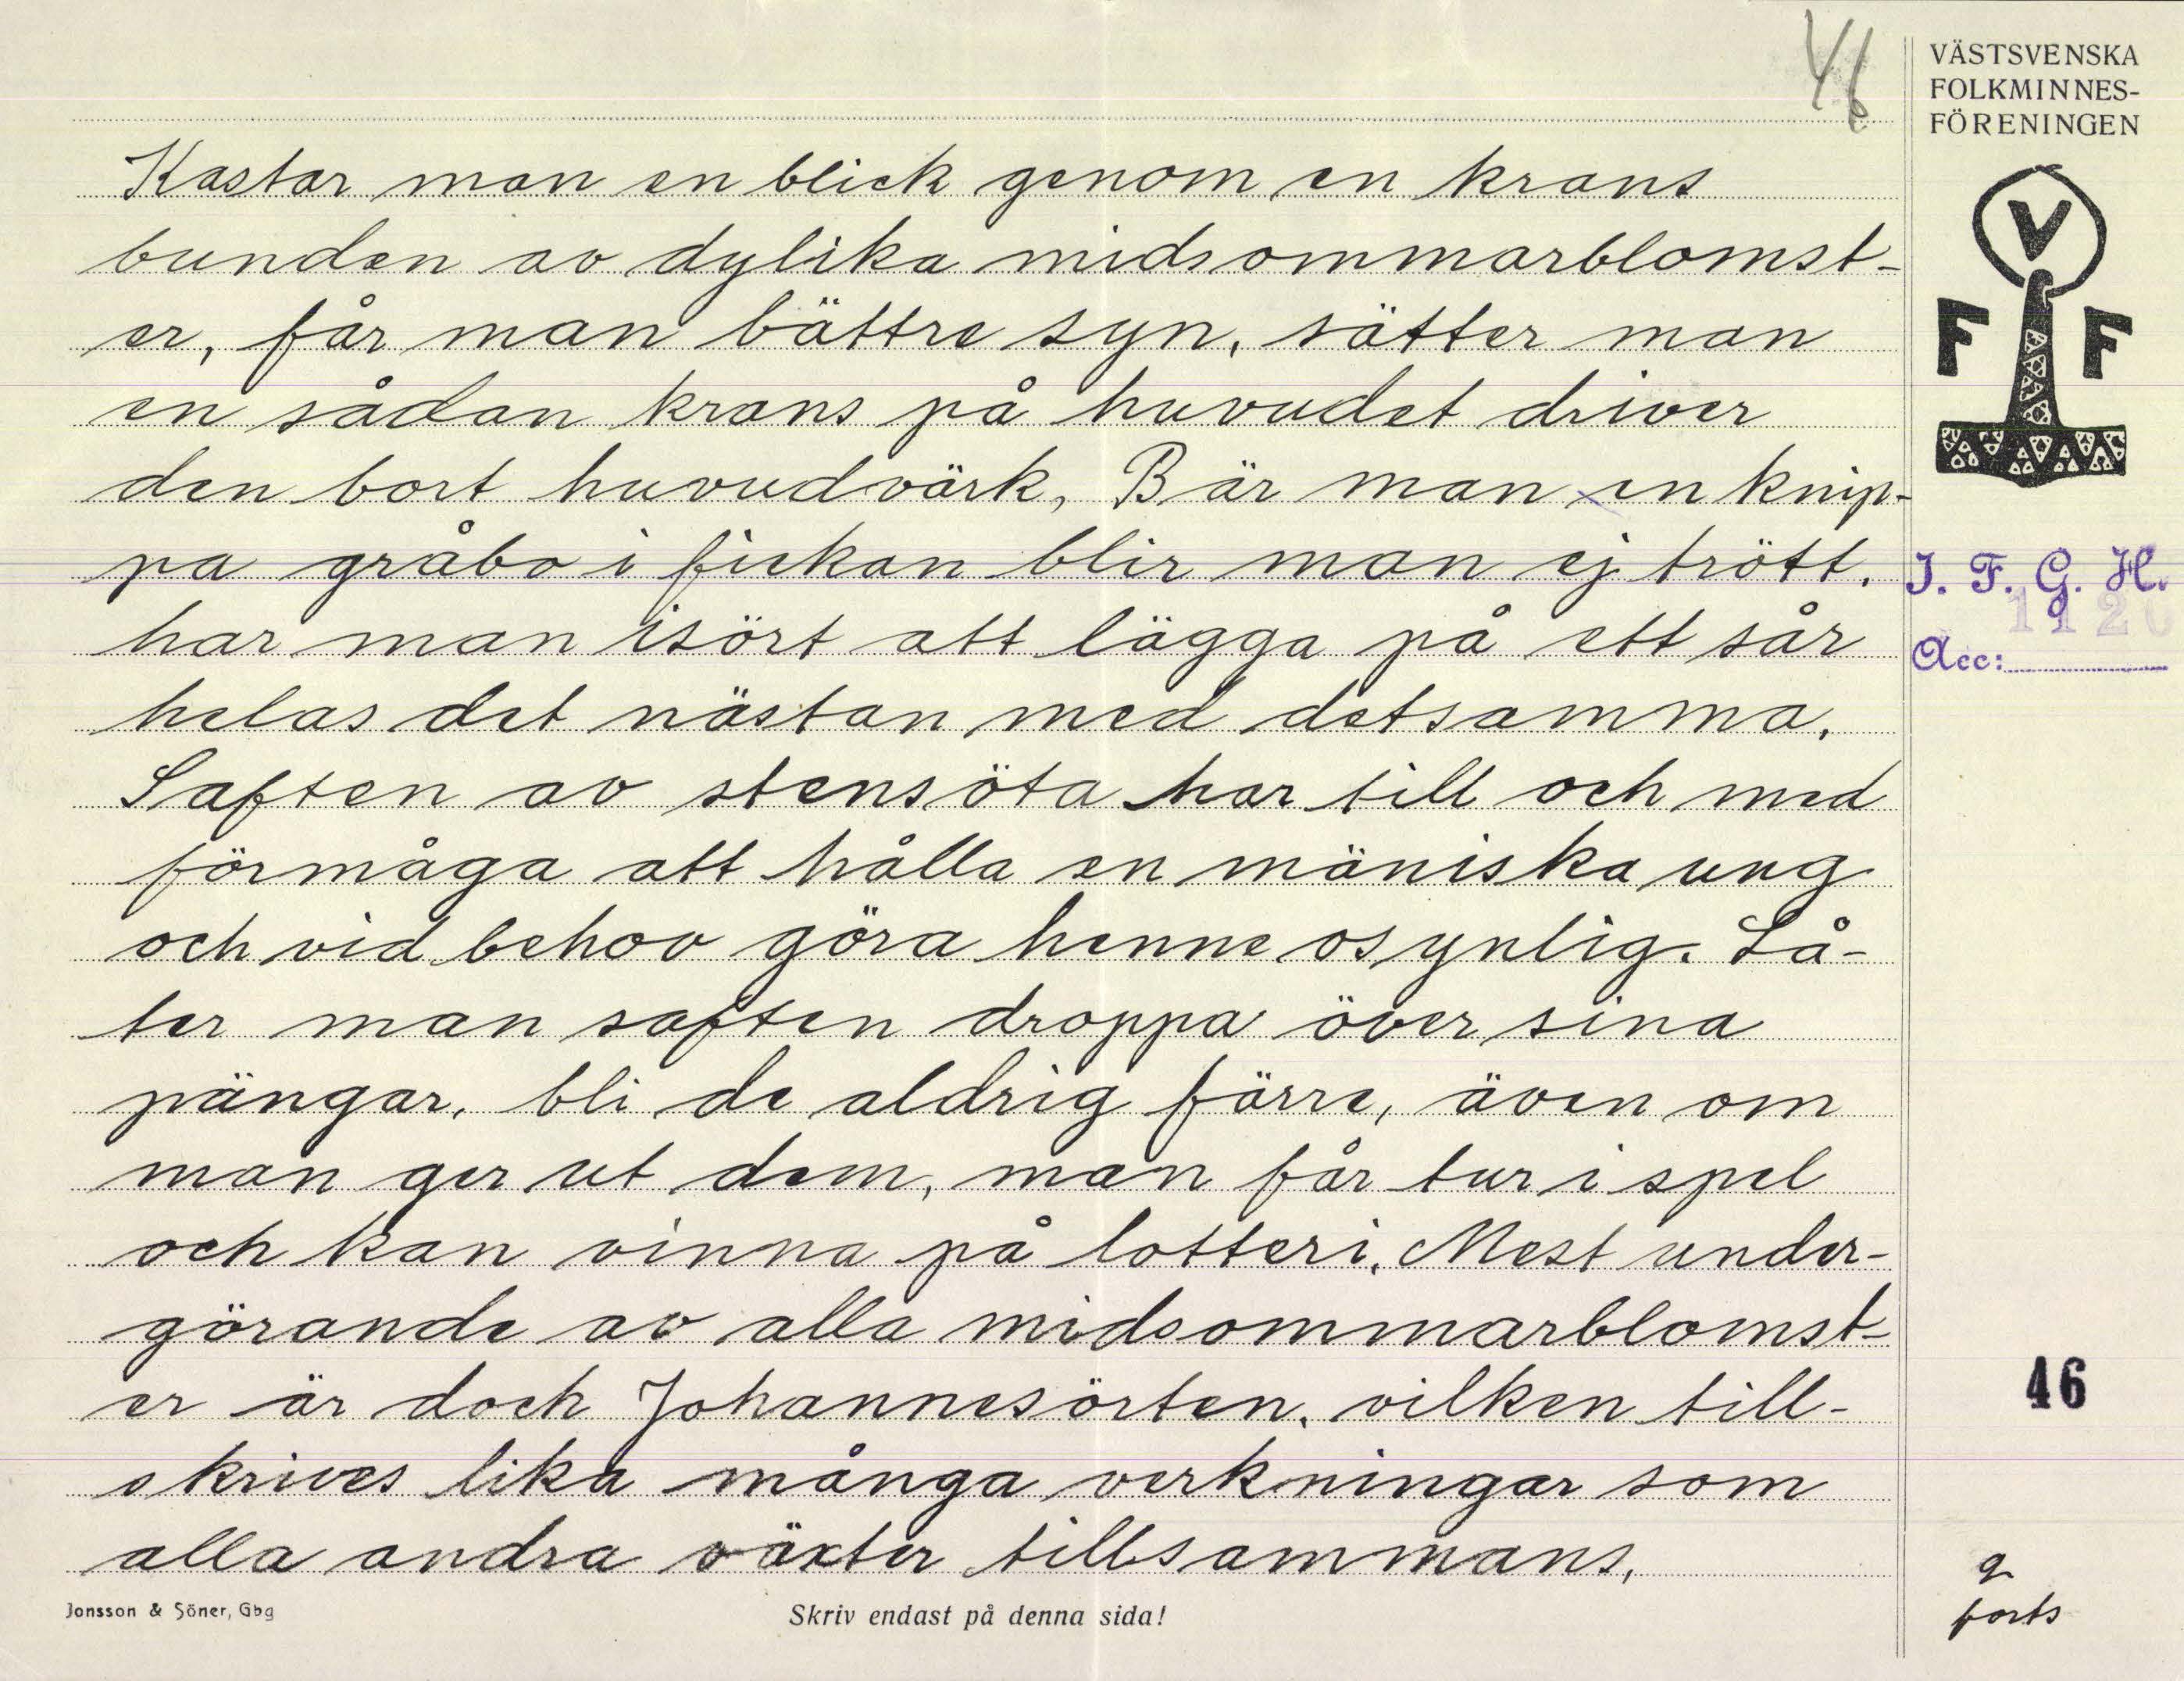 46
VÄSTSVENSKA
FOLKMINNES-
FÖRENINGEN
V
F F
Kastar man en blick genom en krans
bunden av dylika midsommarblomst-
er, får man bättre syn, sätter man
en sådan krans på huvudet driver
den bort huvudvärk, Bär man en knip-
pa gråbo i fickan blir man ej trött.
har man isört att lägga på ett sår
helas det nästan med detsamma.
Saften av stensöta har till och med
förmåga att hålla en mäniska ung
och vid behov göra henne osynlig. Lå-
ter man saften droppa över sina
pängar, bli de aldrig färre, även om
man ger ut dem, man får tur i spel
och kan vinna på lotteri. Mest under-
görande av alla midsommarblomst-
er är dock Johannesörten, vilken till-
skrives lika många verkningar som
alla andra växter tillsammans,
I. F. G. H.
Acc:
46
2
forts
Jonsson & Söner, Gbg
Skriv endast på denna sida!